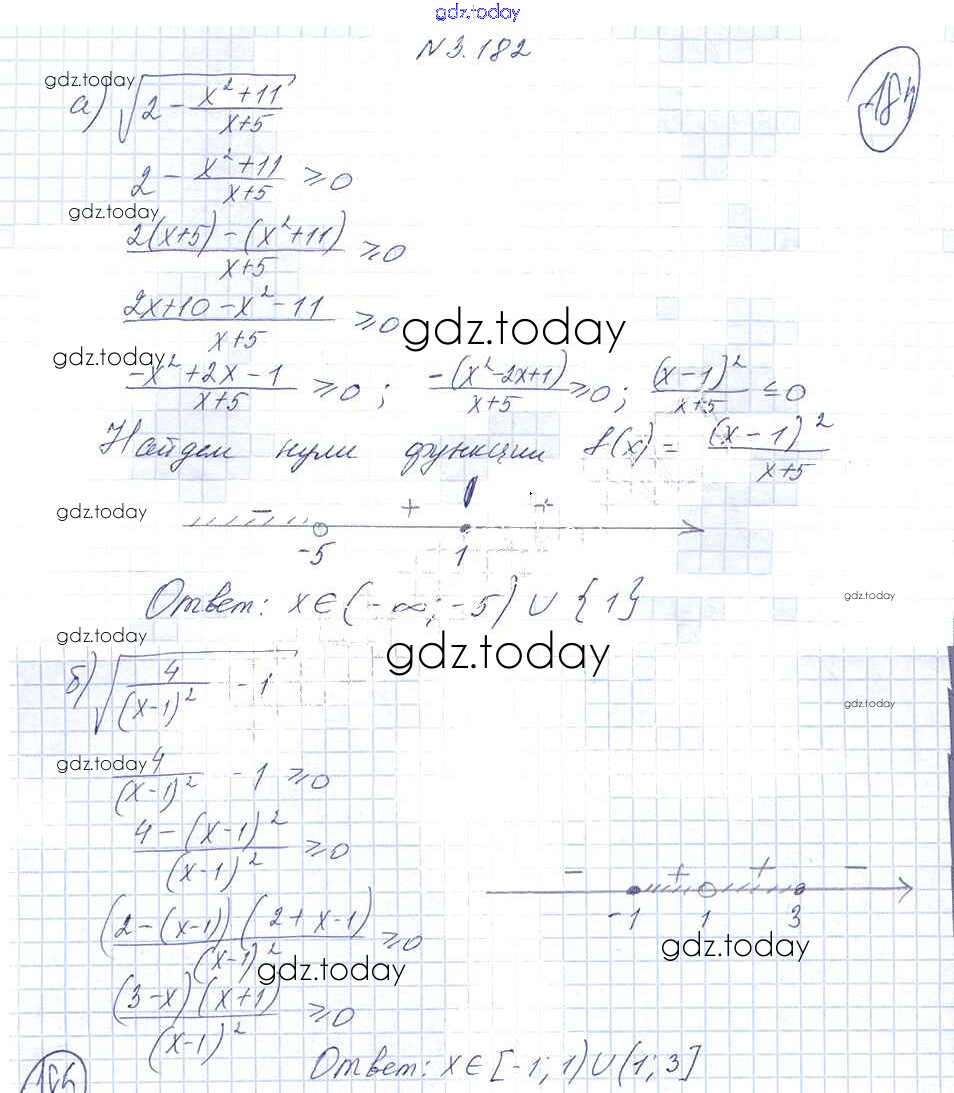 gdz.today
N 3.182
gdz.today
а) √(2 - (x²+11)/(x+5))
2 - (x²+11)/(x+5) ≥ 0
gdz.today
(2(x+5) - (x²+11))/(x+5) ≥ 0
(2x+10 - x² - 11)/(x+5) ≥ 0
gdz.today
gdz.today
(-x²+2x-1)/(x+5) ≥ 0 ; (-(x²-2x+1))/(x+5) ≥ 0 ; (x-1)²/(x+5) ≤ 0
Найдем нули функции f(x) = (x-1)²/(x+5)
gdz.today
- + +
-5 1
Ответ: x ∈ (-∞; -5) ∪ {1}
gdz.today
gdz.today
gdz.today
б) √(4/(x-1)² - 1)
gdz.today
gdz.today
4/(x-1)² - 1 ≥ 0
(4 - (x-1)²)/(x-1)² ≥ 0
- + + -
-1 1 3
(2-(x-1))(2+x-1)/(x-1)² ≥ 0
gdz.today
gdz.today
(3-x)(x+1)/(x-1)² ≥ 0
Ответ: x ∈ [-1; 1) ∪ (1; 3]